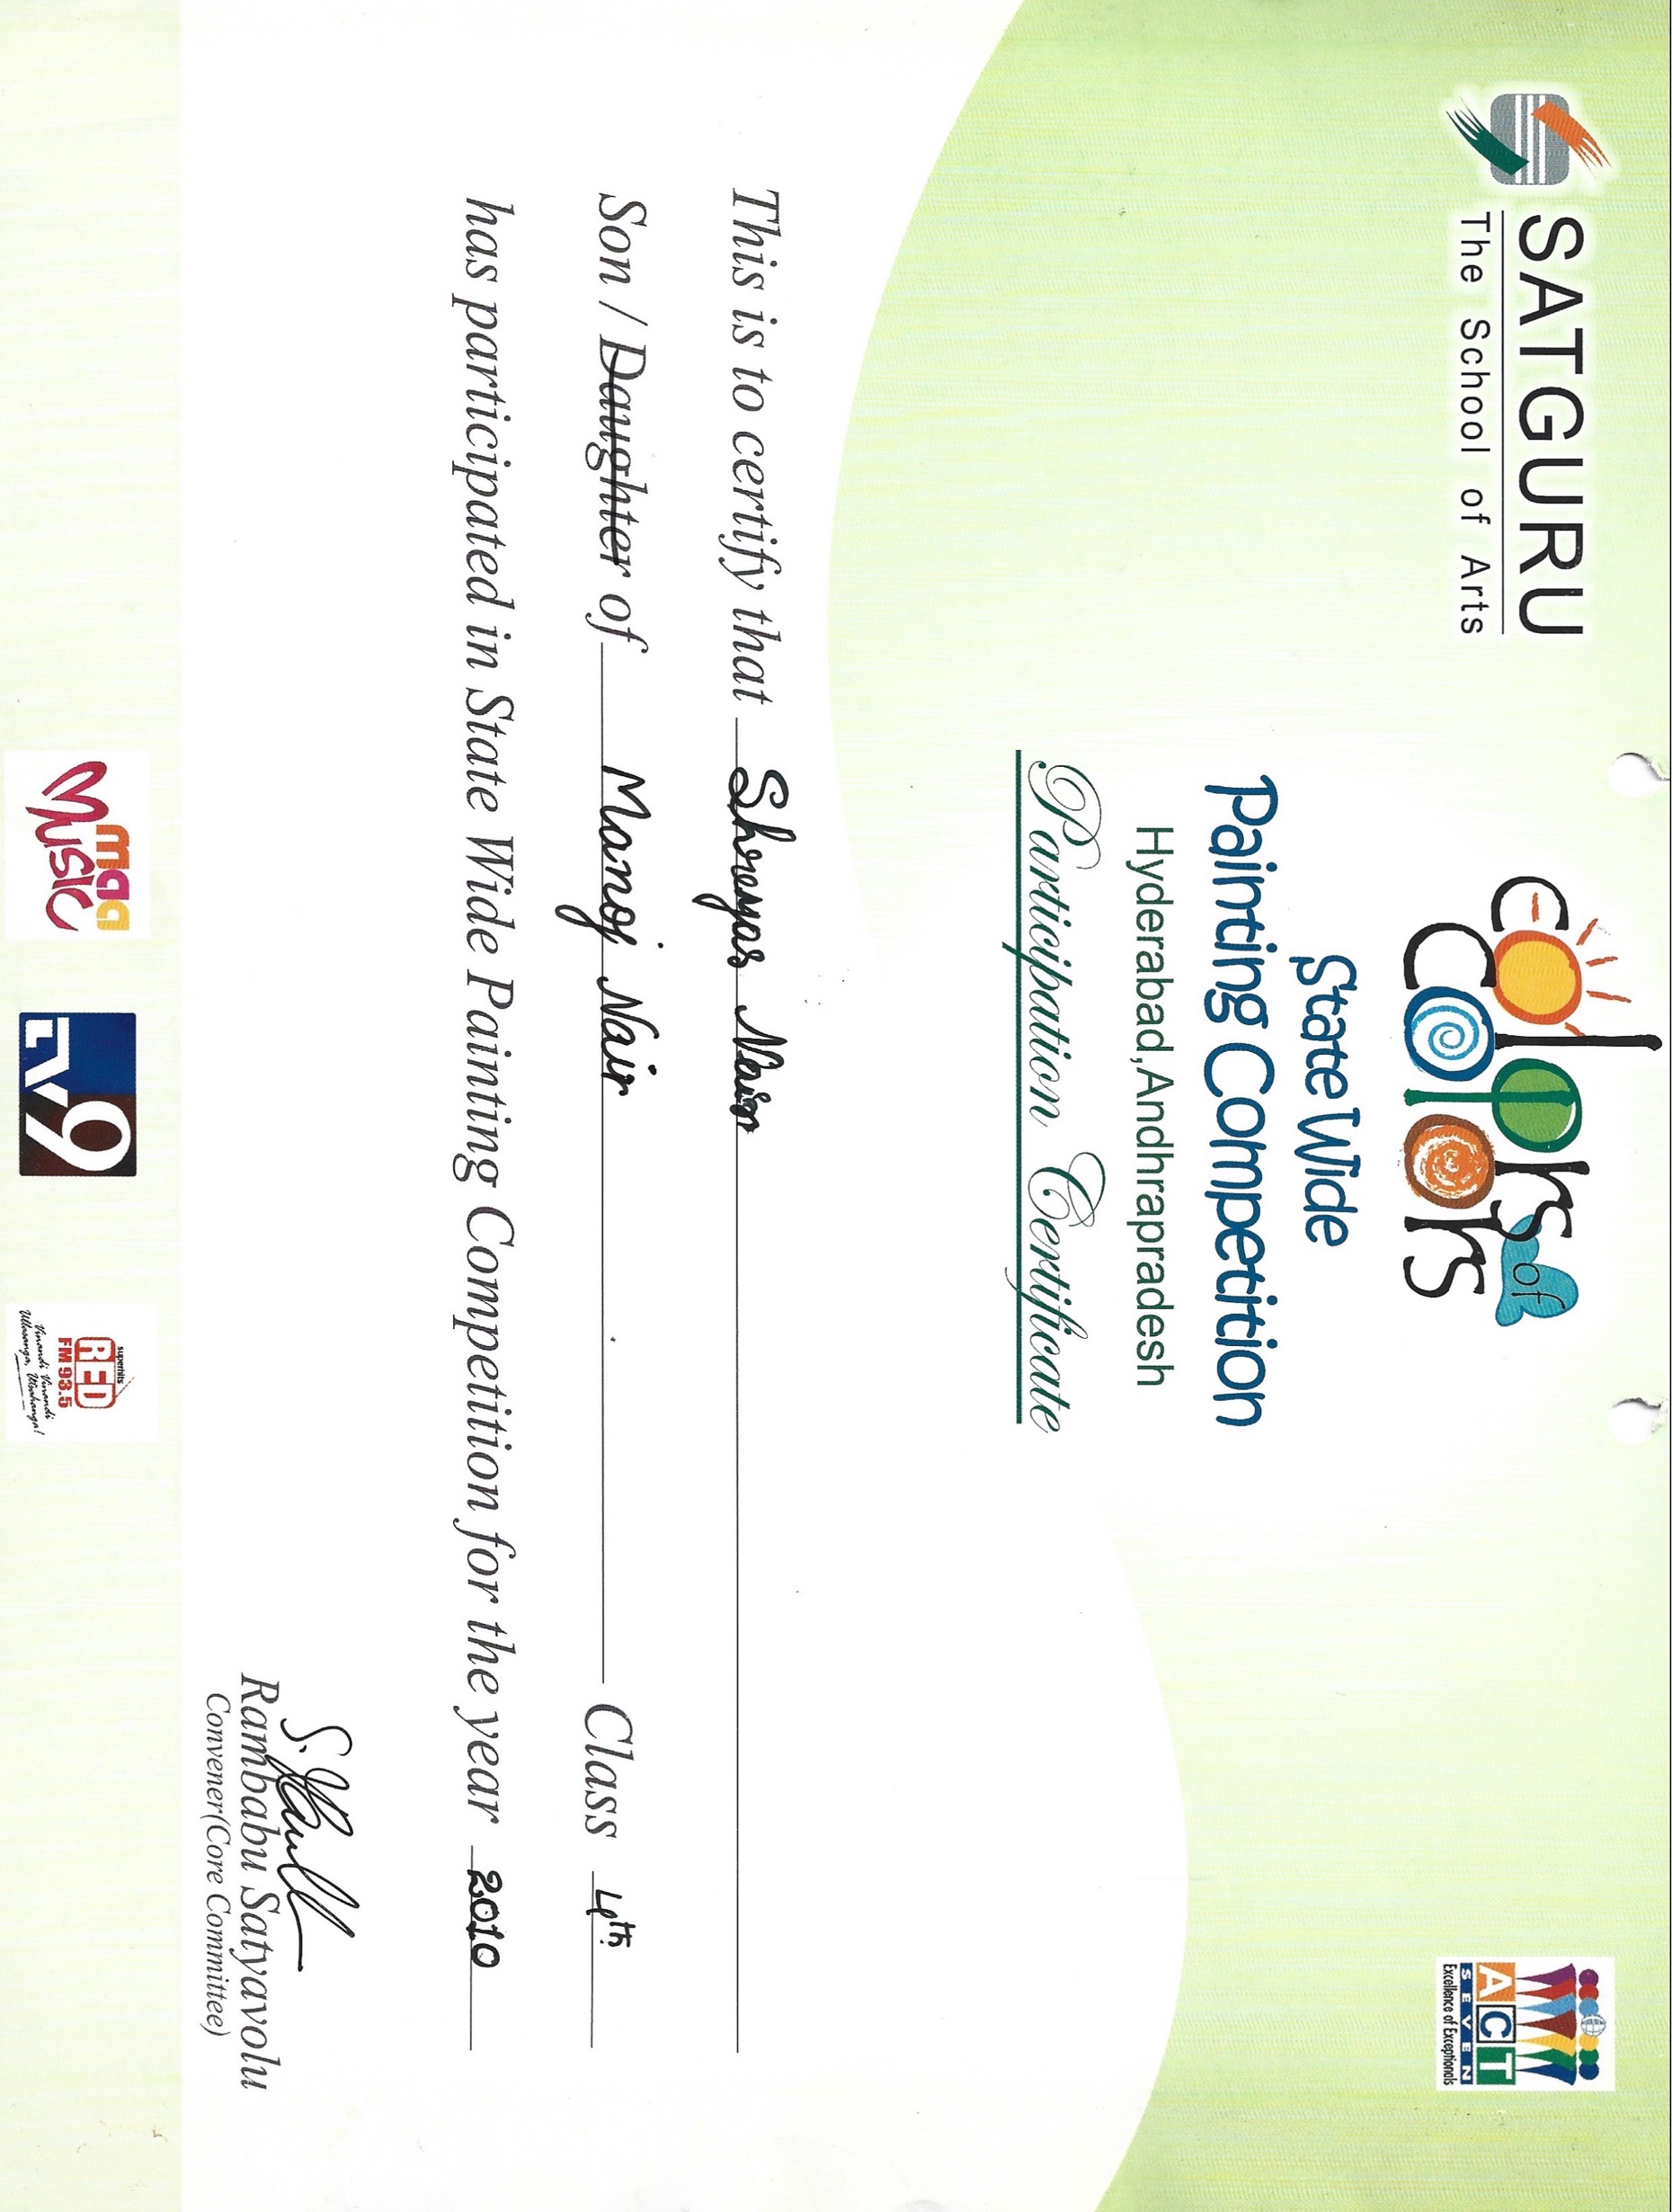 SATGURU
The School of Arts
colors of
colors
ACT
SEVEN
Excellence of Exceptionals
State Wide
Painting Competition
Hyderabad,Andhrapradesh
Participation Certificate
This is to certify that Shreyas Nair
Son / Daughter of Manoj Nair Class 4th
has participated in State Wide Painting Competition for the year 2010
Rambabu Satyavolu
Convener(Core Committee)
maa
Music
TV9
superhits
RED
FM 93.5
Vinandi Vinandi
Ullasanga, Utsahanga!